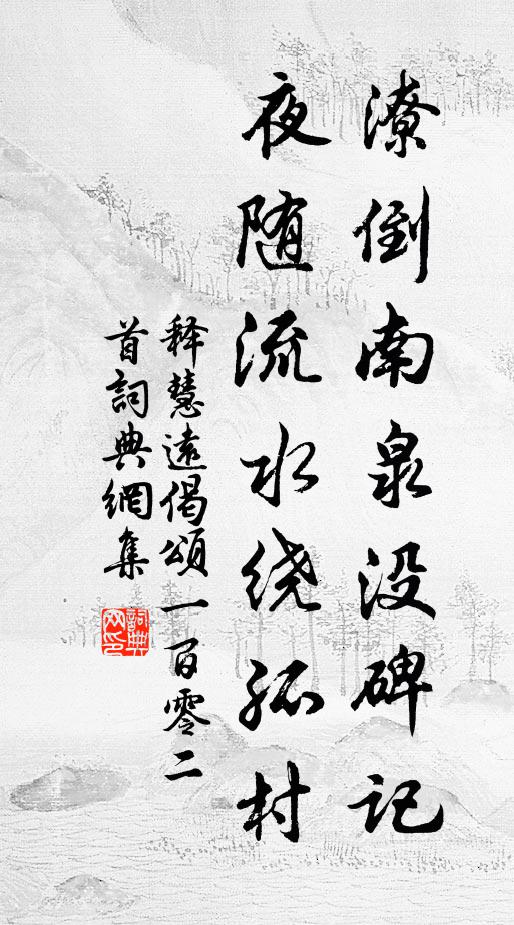 潦倒南泉没碑记
夜随流水绕孤村
释慧遠偈頌一百零二
首詞典網集
詞典网印